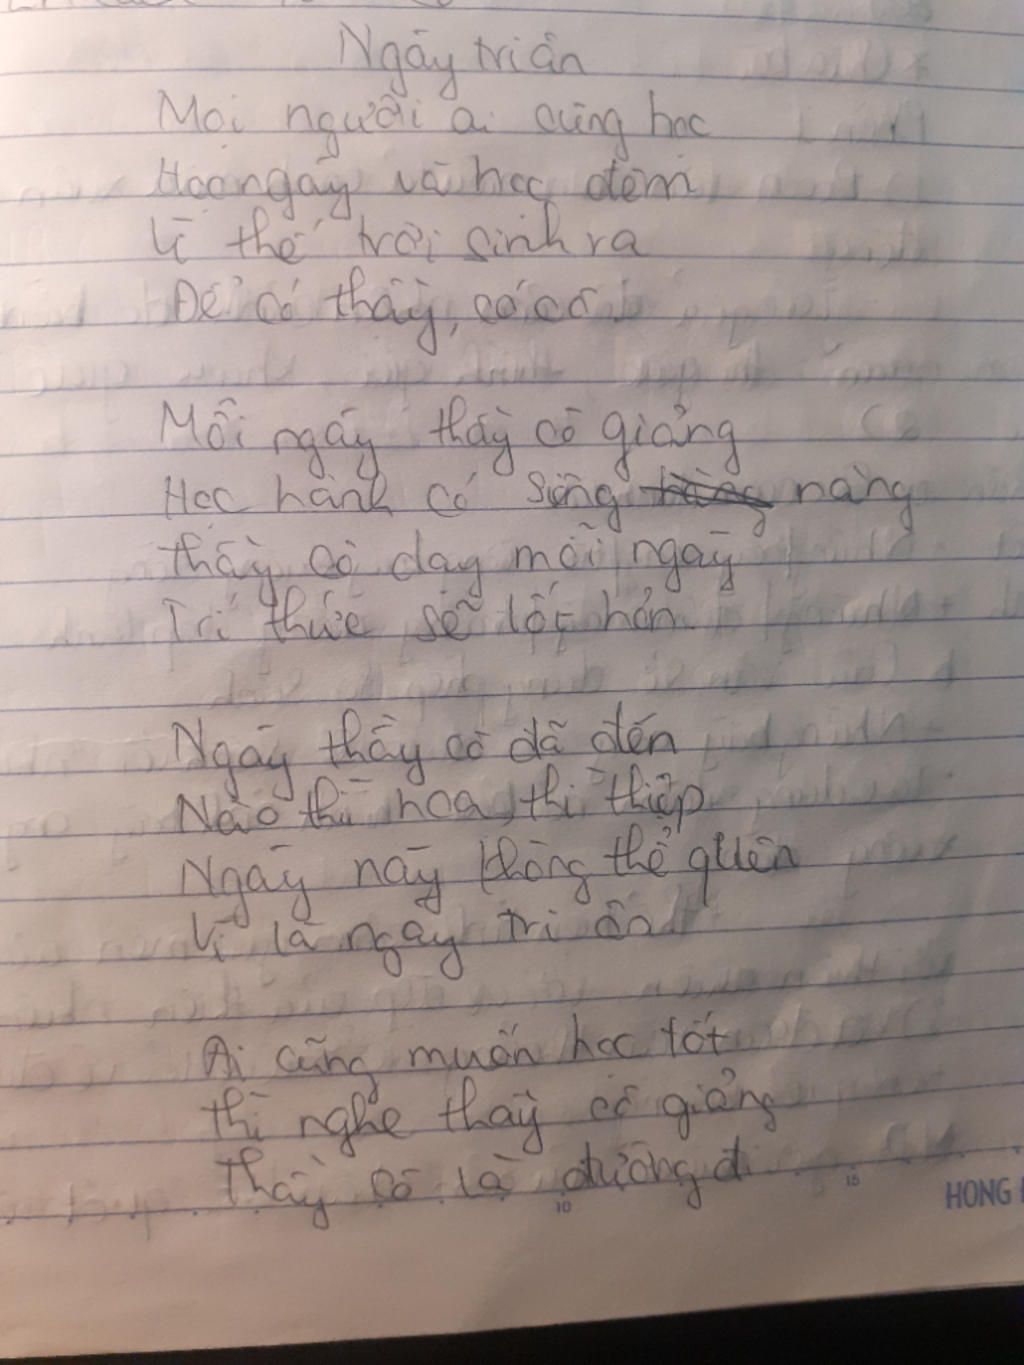 Ngày tri ân
Mọi người ai cũng học
Học ngày và học đêm
Vì thế trời sinh ra
Để có thầy, có cô.
Mỗi ngày thầy cô giảng
Học hành có siêng năng
Thầy cô dạy mỗi ngày
Tri thức sẽ tốt hơn.
Ngày thầy cô đã đến
Nào thì hoa, thì thiệp
Ngày này không thể quên
Vì là ngày tri ân
Ai cũng muốn học tốt
Thì nghe thầy cô giảng
Thầy cô là đường đi
10
15
HONG